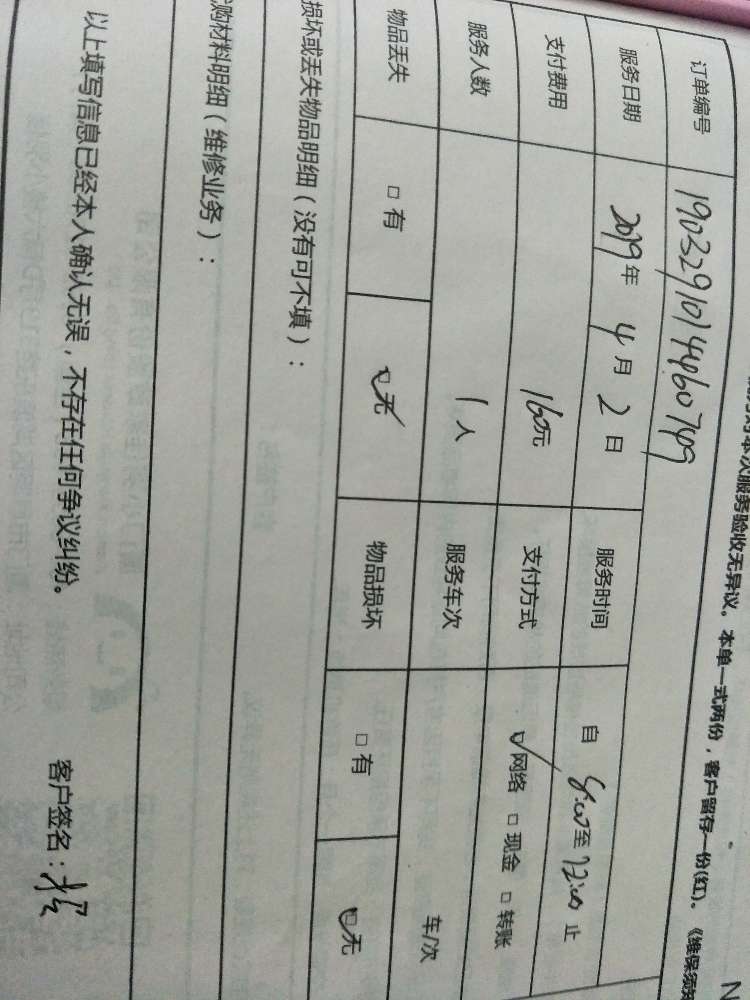 本次服务验收无异议。本单一式两份，客户留存一份(红)。《维保须知
订单编号 19032910144607499
服务日期 2019年 4月 2日 服务时间 自 8:00 至 12:00 止
支付费用 160元 支付方式 ☑网络 □现金 □转账
服务人数 1人 服务车次 车/次
物品丢失 □有 ☑无 物品损坏 □有 ☑无
损坏或丢失物品明细（没有可不填）：
购材料明细（维修业务）：
以上填写信息已经本人确认无误，不存在任何争议纠纷。 客户签名：